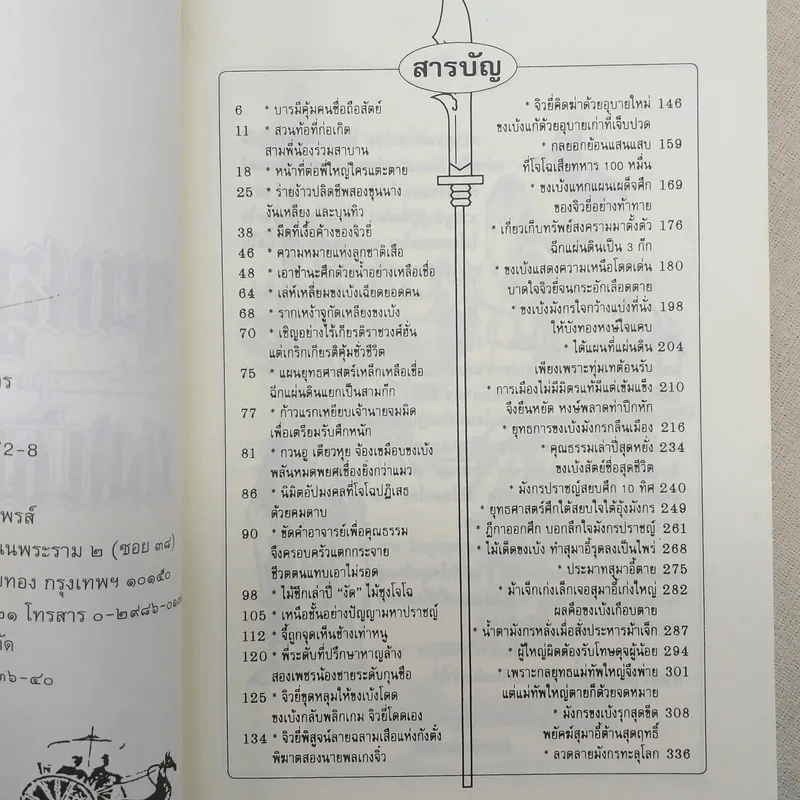 สารบัญ
6 * บารมีคุ้มคนซื่อถือสัตย์
11 * สวนท้อที่ก่อเกิด
สามพี่น้องร่วมสาบาน
18 * หน้าที่ต่อพี่ใหญ่ใครแตะตาย
25 * ร่ายง้าวปลิดชีพสองขุนนาง
งันเหลียง และบุนทิว
38 * มีดที่เงื้อค้างของจิวยี่
46 * ความหมายแห่งลูกชาติเสือ
48 * เอาชำนะศึกด้วยน้ำอย่างเหลือเชื่อ
64 * เล่ห์เหลี่ยมขงเบ้งเฉียดยอดคน
68 * รากเหง้าจูกัดเหลียงขงเบ้ง
70 * เชิญอย่างไร้เกียรติราชวงศ์ฮั่น
แต่เกริกเกียรติคุ้มชั่วชีวิต
75 * แผนยุทธศาสตร์เหล็กเหลือเชื่อ
ฉีกแผ่นดินแยกเป็นสามก๊ก
77 * ก้าวแรกเหยียบเจ้านายจมมิด
เพื่อเตรียมรับศึกหนัก
81 * กวนอู เตียวหุย จ้องเขมือบขงเบ้ง
พลันหมดพยศเชื่องยิ่งกว่าแมว
86 * นิมิตอัปมงคลที่โจโฉปฏิเสธ
ด้วยคมดาบ
90 * ขัดคำอาจารย์เพื่อคุณธรรม
จึงครอบครัวแตกกระจาย
ชีวิตตนแทบเอาไม่รอด
98 * ไม้ซีกเล่าปี่ "งัด" ไม้ซุงโจโฉ
105 * เหนือชั้นอย่างปัญญามหาปราชญ์
112 * จี้ถูกจุดเห็นช้างเท่าหนู
120 * พี่ระดับที่ปรึกษาหาญล้าง
สองเพชรน้องชายระดับกุนซือ
125 * จิวยี่ขุดหลุมให้ขงเบ้งโดด
ขงเบ้งกลับพลิกเกม จิวยี่โดดเอง
134 * จิวยี่พิสูจน์ลายฉลามเสือแห่งกังตั๋ง
พิฆาตสองนายพลเกงจิ๋ว
* จิวยี่คิดฆ่าด้วยอุบายใหม่ 146
ขงเบ้งแก้ด้วยอุบายเก่าที่เจ็บปวด
* กลยอกย้อนแสนแสบ 159
ที่โจโฉเสียทหาร 100 หมื่น
* ขงเบ้งแหกแผนเผด็จศึก 169
ของจิวยี่อย่างท้าทาย
* เกี่ยวเก็บทรัพย์สงครามมาตั้งตัว 176
ฉีกแผ่นดินเป็น 3 ก๊ก
* ขงเบ้งแสดงความเหนือโดดเด่น 180
บาดใจจิวยี่จนกระอักเลือดตาย
* ขงเบ้งมังกรใจกว้างแบ่งที่นั่ง 198
ให้บังทองหงษ์ใจแคบ
* ได้แผนที่แผ่นดิน 204
เพียงเพราะทุ่มเทต้อนรับ
* การเมืองไม่มีมิตรแท้มีแต่เข้มแข็ง 210
จึงยืนหยัด หงษ์พลาดท่าปีกหัก
* ยุทธการขงเบ้งมังกรกลืนเมือง 216
* คุณธรรมเล่าปี่สุดหยั่ง 234
ขงเบ้งสัตย์ซื่อสุดชีวิต
* มังกรปราชญ์สยบศึก 10 ทิศ 240
* ยุทธศาสตร์ศึกใต้สยบใจใต้อุ้งมังกร 249
* ฎีกาออกศึก บอกลึกใจมังกรปราชญ์ 261
* ไม้เด็ดขงเบ้ง ทำสุมาอี้รุดลงเป็นไพร่ 268
* ประมาทสุมาอี้ตาย 275
* ม้าเจ๊กเก่งเล็กเจอสุมาอี้เก่งใหญ่ 282
ผลคือขงเบ้งเกือบตาย
* น้ำตามังกรหลั่งเมื่อสั่งประหารม้าเจ๊ก 287
* ผู้ใหญ่ผิดต้องรับโทษดุจผู้น้อย 294
* เพราะกลยุทธแม่ทัพใหญ่จึงพ่าย 301
แต่แม่ทัพใหญ่ตายก็ด้วยจดหมาย
* มังกรขงเบ้งรุกสุดขีด 308
พยัคฆ์สุมาอี้ต้านสุดฤทธิ์
* ลวดลายมังกรทะลุโลก 336
ร
/2-8
พรส์
นนพระราม ๒ (ซอย ๓๘)
ทอง กรุงเทพฯ ๑๐๑๕๐
๒๑ โทรสาร
ัด
๓๖-๔๐